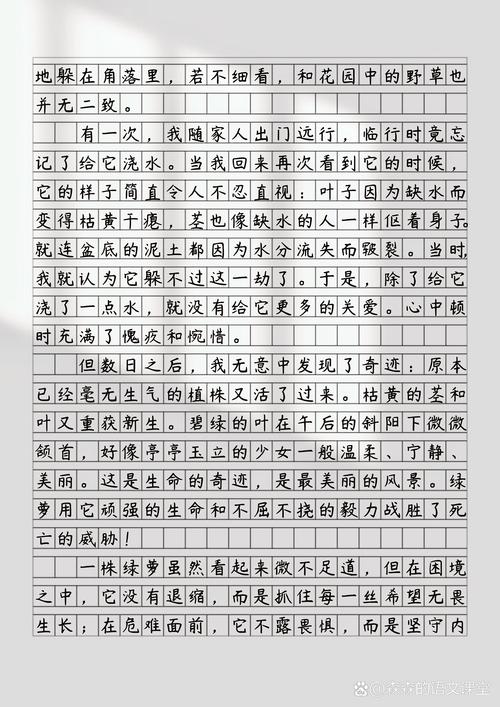 地躲在角落里，若不细看，和花园中的野草也
并无二致。
有一次，我随家人出门远行，临行时竟忘
记了给它浇水。当我回来再次看到它的时候，
它的样子简直令人不忍直视：叶子因为缺水而
变得枯黄干瘪，茎也像缺水的人一样伛着身子。
就连盆底的泥土都因为水分流失而皲裂。当时，
我就认为它躲不过这一劫了。于是，除了给它
浇了一点水，就没有给它更多的关爱。心中顿
时充满了愧疚和惋惜。
但数日之后，我无意中发现了奇迹：原本
已经毫无生气的植株又活了过来。枯黄的茎和
叶又重获新生。碧绿的叶在午后的斜阳下微微
颔首，好像亭亭玉立的少女一般温柔、宁静、
美丽。这是生命的奇迹，是最美丽的风景。绿
萝用它顽强的生命和不屈不挠的毅力战胜了死
亡的威胁！
一株绿萝虽然看起来微不足道，但在困境
之中，它没有退缩，而是抓住每一丝希望无畏
生长；在危难面前，它不露畏惧，而是坚守内
森森的语文课堂